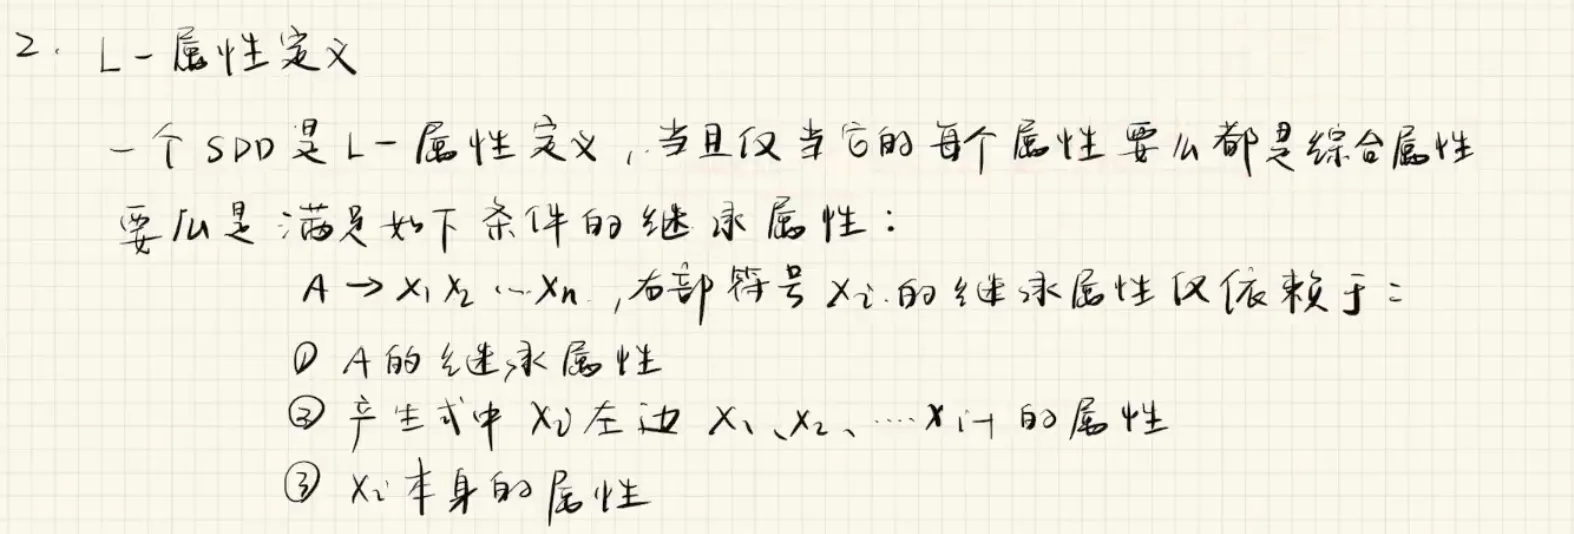 2. L-属性定义
一个SDD是L-属性定义,当且仅当它的每个属性要么都是综合属性
要么是满足如下条件的继承属性:
A→X₁X₂…Xn,右部符号Xi的继承属性仅依赖于:
① A的继承属性
② 产生式中Xi左边X₁、X₂、…Xi-1的属性
③ Xi本身的属性